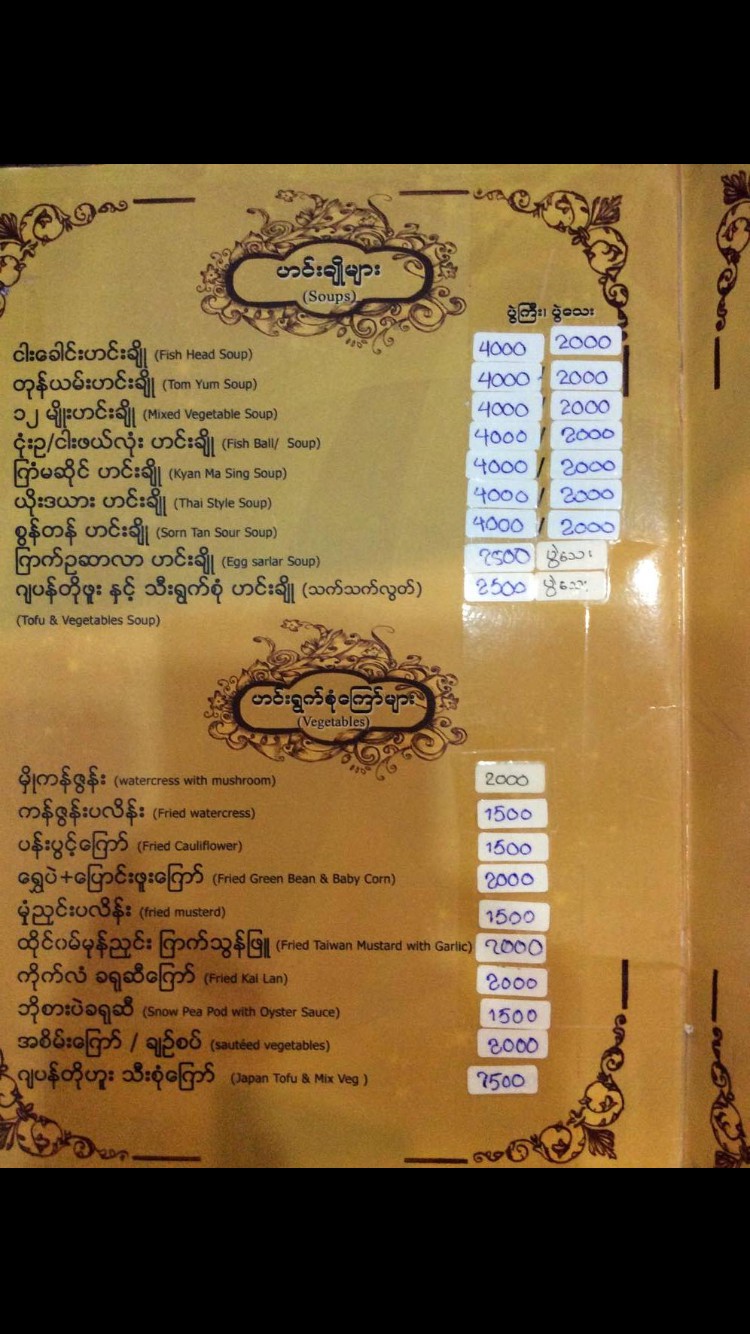 ဟင်းချိုများ
(Soups)
ပွဲကြီး၊ ပွဲသေး
ငါးခေါင်းဟင်းချို (Fish Head Soup) 4000 2000
တုန်ယမ်းဟင်းချို (Tom Yum Soup) 4000 / 2000
၁၂ မျိုးဟင်းချို (Mixed Vegetable Soup) 4000 / 2000
ငုံးဥ/ငါးဖယ်လုံး ဟင်းချို (Fish Ball/ Soup) 4000 / 2000
ကြံမဆိုင် ဟင်းချို (Kyan Ma Sing Soup) 4000 / 2000
ယိုးဒယား ဟင်းချို (Thai Style Soup) 4000 / 2000
စွန်တန် ဟင်းချို (Sorn Tan Sour Soup) 4000 / 2000
ကြက်ဥဆာလာ ဟင်းချို (Egg sarlar Soup) 2500 ပွဲသေး
ဂျပန်တိုဖူး နှင့် သီးရွက်စုံ ဟင်းချို (သက်သက်လွတ်) 2500 ပွဲသေး
(Tofu & Vegetables Soup)
ဟင်းရွက်စုံကြော်များ
(Vegetables)
မှိုကန်ဇွန်း (watercress with mushroom) 2000
ကန်ဇွန်းပလိန်း (Fried watercress) 1500
ပန်းပွင့်ကြော် (Fried Cauliflower) 1500
ရွှေပဲ+ပြောင်းဖူးကြော် (Fried Green Bean & Baby Corn) 2000
မုံညှင်းပလိန်း (fried musterd) 1500
ထိုင်ဝမ်မုန်ညှင်း ကြက်သွန်ဖြူ (Fried Taiwan Mustard with Garlic) 2000
ကိုက်လံ ခရုဆီကြော် (Fried Kai Lan) 2000
ဘိုစားပဲခရုဆီ (Snow Pea Pod with Oyster Sauce) 1500
အစိမ်းကြော် / ချဉ်စပ် (sautéed vegetables) 2000
ဂျပန်တိုဟူး သီးစုံကြော် (Japan Tofu & Mix Veg ) 2500